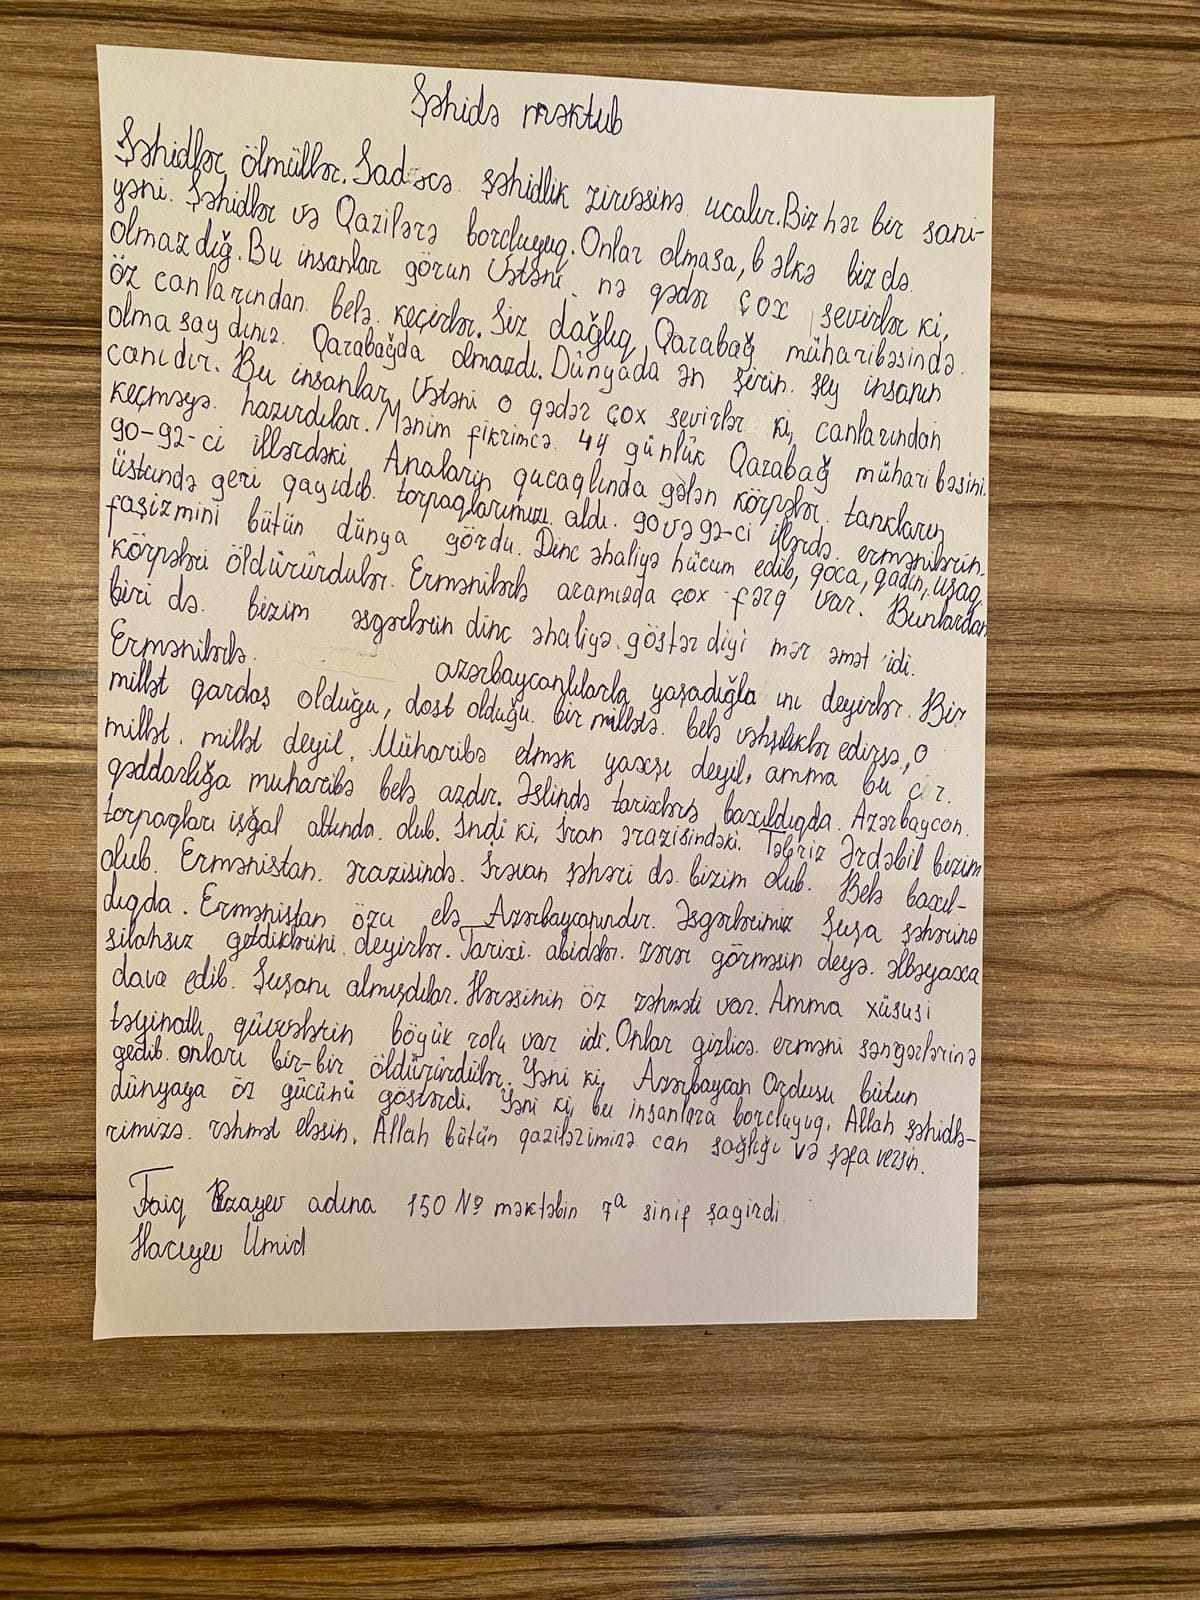 Şəhidə məktub
Şəhidlər ölmüllər. Sadəcə şəhidlik zirvəsinə ucalır. Biz hər bir sani-
yəni. Şəhidlər və Qazilərə borcluyuq. Onlar olmasa, bəlkə bizdə
olmazdığ. Bu insanlar görün Vətəni nə qədər çox sevirlər ki,
öz canlarından belə keçirlər. Siz dağlıq Qarabağ müharibəsində
olmasaydınız Qarabağda olmazdı. Dünyada ən şirin şey insanın
canıdır. Bu insanlar Vətəni o qədər çox sevirlər ki, canlarından
keçməyə hazırdılar. Mənim fikrimcə 44 günlük Qarabağ müharibəsini.
90-92-ci illərdəki Anaların qucaqlında gələn körpələr tankların
üstündə geri qayıdıb torpaqlarımızı aldı. 90 və 92-ci illərdə ermənilərin
faşizmini bütün dünya gördu. Dinc əhaliyə hücum edib, qoca, qadın, uşaq,
körpələri öldürürdülər. Ermənilərlə aramızda çox fərq var. Bunlardan
biri də bizim əsgərlərin dinc əhaliyə göstərdiyi mərəmət idi.
Ermənilərdə azərbaycanlılarla yaşadığla ını deyirlər. Bir
millət qardaş olduğu, dost olduğu bir millətə belə vəhşiliklər edirsə, o
millət millət deyil. Müharibə etmək yaxşı deyil, amma bu cür
qəddarlığa muharibə belə azdır. Əslində tarixlərə baxıldıqda Azərbaycan
torpaqları işğal altında olub. İndi ki, İran ərazisindəki Təbriz Ərdəbil bizim
olub. Ermənistan ərazisində İrəvan şəhəri də bizim olub. Belə baxıl-
dıqda. Ermənistan özü elə Azərbaycanındır. Əsgərlərimiz Şuşa şəhərinə
silahsız getdiklərini deyirlər. Tarixi abidələr zərər görməsin deyə əlbəyaxa
dava edib Şuşanı almışdılar. Hərəsinin öz zəhməti var. Amma xüsusi
təyinatlı qüvvələrin böyük rolu var idi. Onlar gizlicə erməni səngərlərinə
gedib onları bir-bir öldürürdülər. Yəni ki, Azərbaycan Ordusu bütun
dünyaya öz gücünü göstərdi. Yəni ki, bu insanlara borcluyuq. Allah şəhidlə-
rimizə rəhmət eləsin. Allah bütün qazilərimizə can sağlığı və şəfa versin.
Faiq adına 150 № məktəbin 7ᵃ sinif şagirdi
Hacıyev Ümid